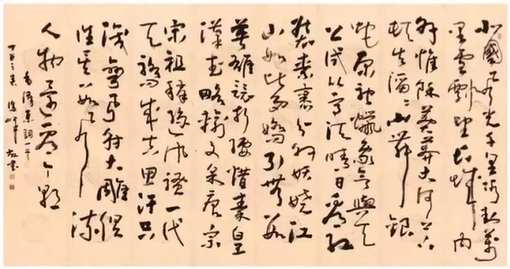 北國風光千里冰封萬
里雪飄望長城內
外惟餘莽莽大河上下
頓失滔滔山舞銀
蛇原馳蠟象欲與天
公試比高須晴日看紅
裝素裹分外妖嬈江
山如此多嬌引無數
英雄競折腰惜秦皇
漢武略輸文采唐宗
宋祖稍遜風騷一代
天驕成吉思汗只
識彎弓射大雕俱
往矣數風流
人物還看今朝
毛澤東詞一首
丁亥之春